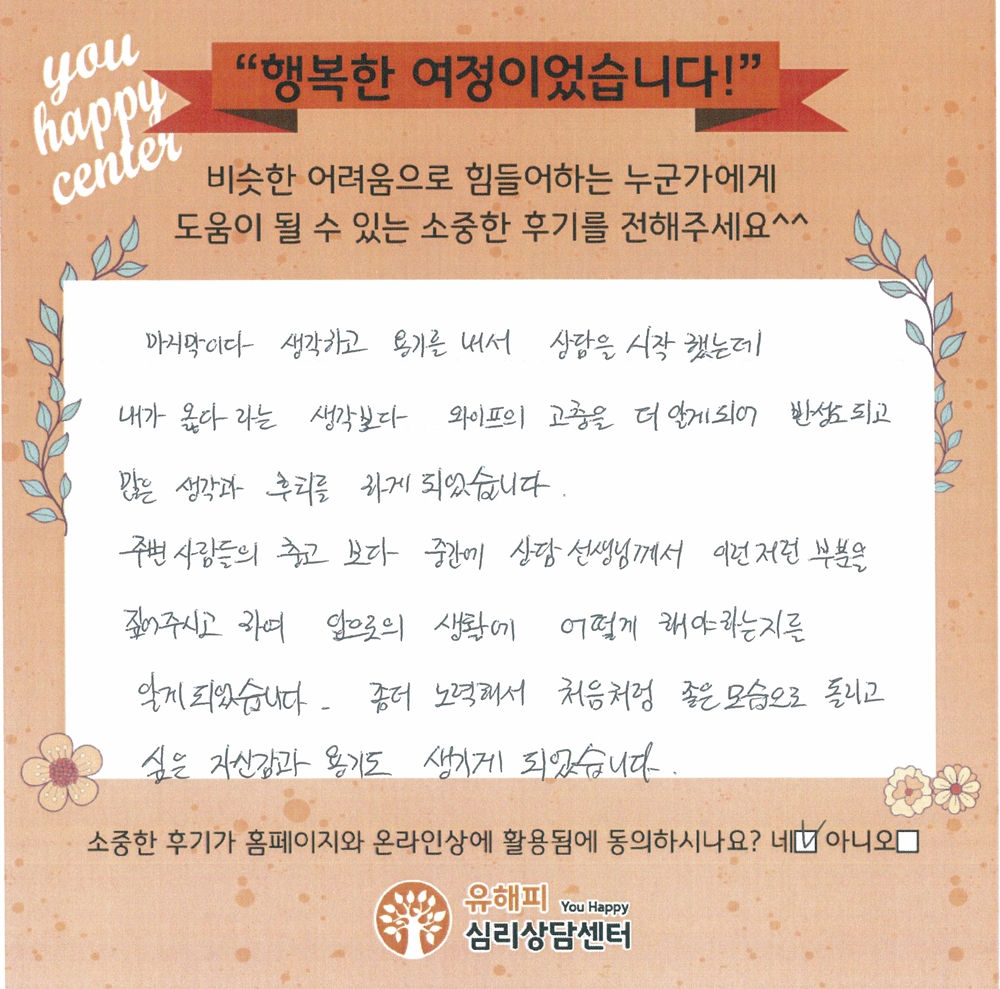 you
happy
center
“행복한 여정이었습니다!”
비슷한 어려움으로 힘들어하는 누군가에게
도움이 될 수 있는 소중한 후기를 전해주세요^^
마지막이다 생각하고 용기를 내서 상담을 시작 했는데
내가 옳다 라는 생각보다 와이프의 고충을 더 알게되어 반성도 되고
많은 생각과 후회를 하게 되었습니다.
주변 사람들의 충고 보다 중간에 상담 선생님께서 이런저런 부분을
짚어주시고 하여 앞으로의 생활에 어떻게 해야하는지를
알게 되었습니다. 좀더 노력해서 처음처럼 좋은모습으로 돌리고
싶은 자신감과 용기도 생기게 되었습니다.
소중한 후기가 홈페이지와 온라인상에 활용됨에 동의하시나요? 네☑ 아니오□
유해피 You Happy
심리상담센터